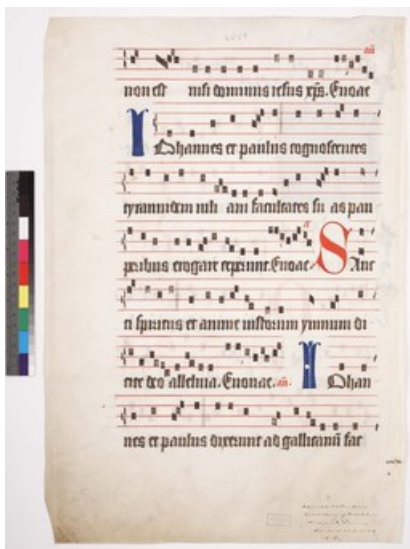 an̄
non est nisi dominus iesus xp̄s. Euouae
Iohannes et paulus cognoscentes
tyrannidem iuli ani facultates su as pau
peribus erogare ceperunt. Euouae Sanc
ti spiritus et anime iustorum ymnum di
cite deo alleluia. Euouae. an̄. Iohan
nes et paulus dixerunt ad gallicanū fac